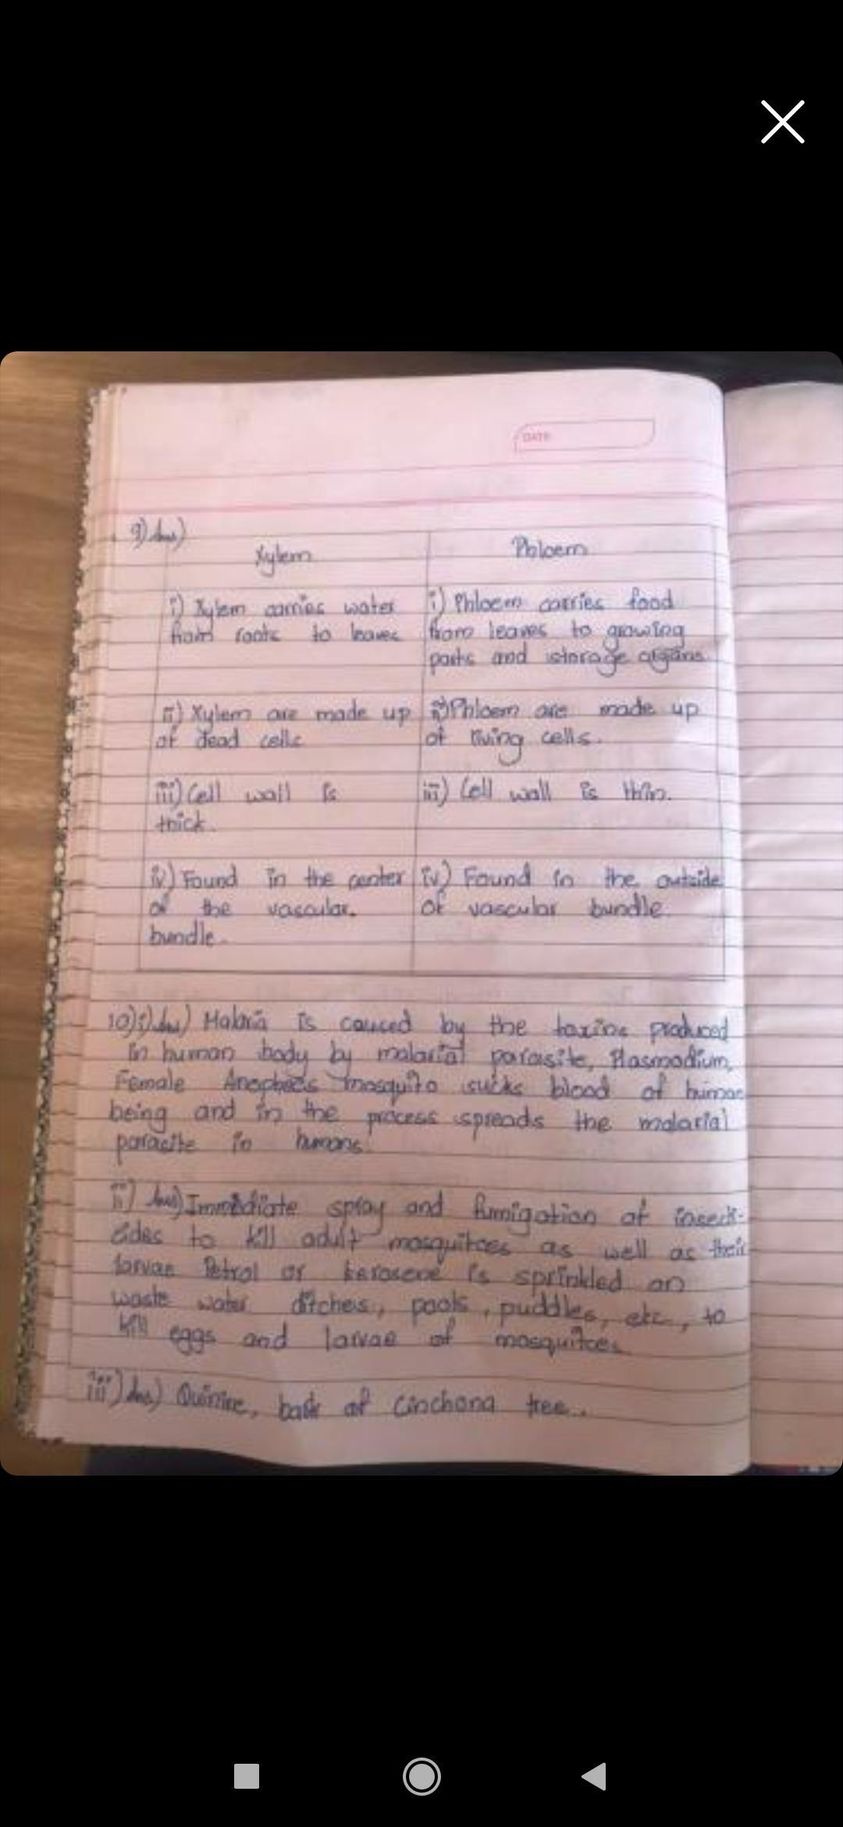 DATE
9) Ans)
Xylem
Phloem
i) Xylem carries water
from roots to leaves
i) Phloem carries food
from leaves to growing
parts and storage organs.
ii) Xylem are made up
of dead cells
ii) Phloem are made up
of living cells.
iii) Cell wall is
thick.
iii) Cell wall is thin.
iv) Found in the center
of the vascular.
bundle.
iv) Found in the outside
of vascular bundle.
10) i) Ans) Malaria is caused by the toxins produced
in human body by malarial parasite, Plasmodium,
Female Anopheles mosquito sucks blood of human
being and in the process spreads the malarial
parasite in humans.
ii) Ans) Immediate spray and fumigation of insecti-
cides to kill adult mosquitoes as well as their
larvae Petrol or kerosene is sprinkled on
waste water ditches, pools, puddles, etc., to
kill eggs and larvae of mosquitoes.
iii) Ans) Quinine, bark of Cinchona tree.